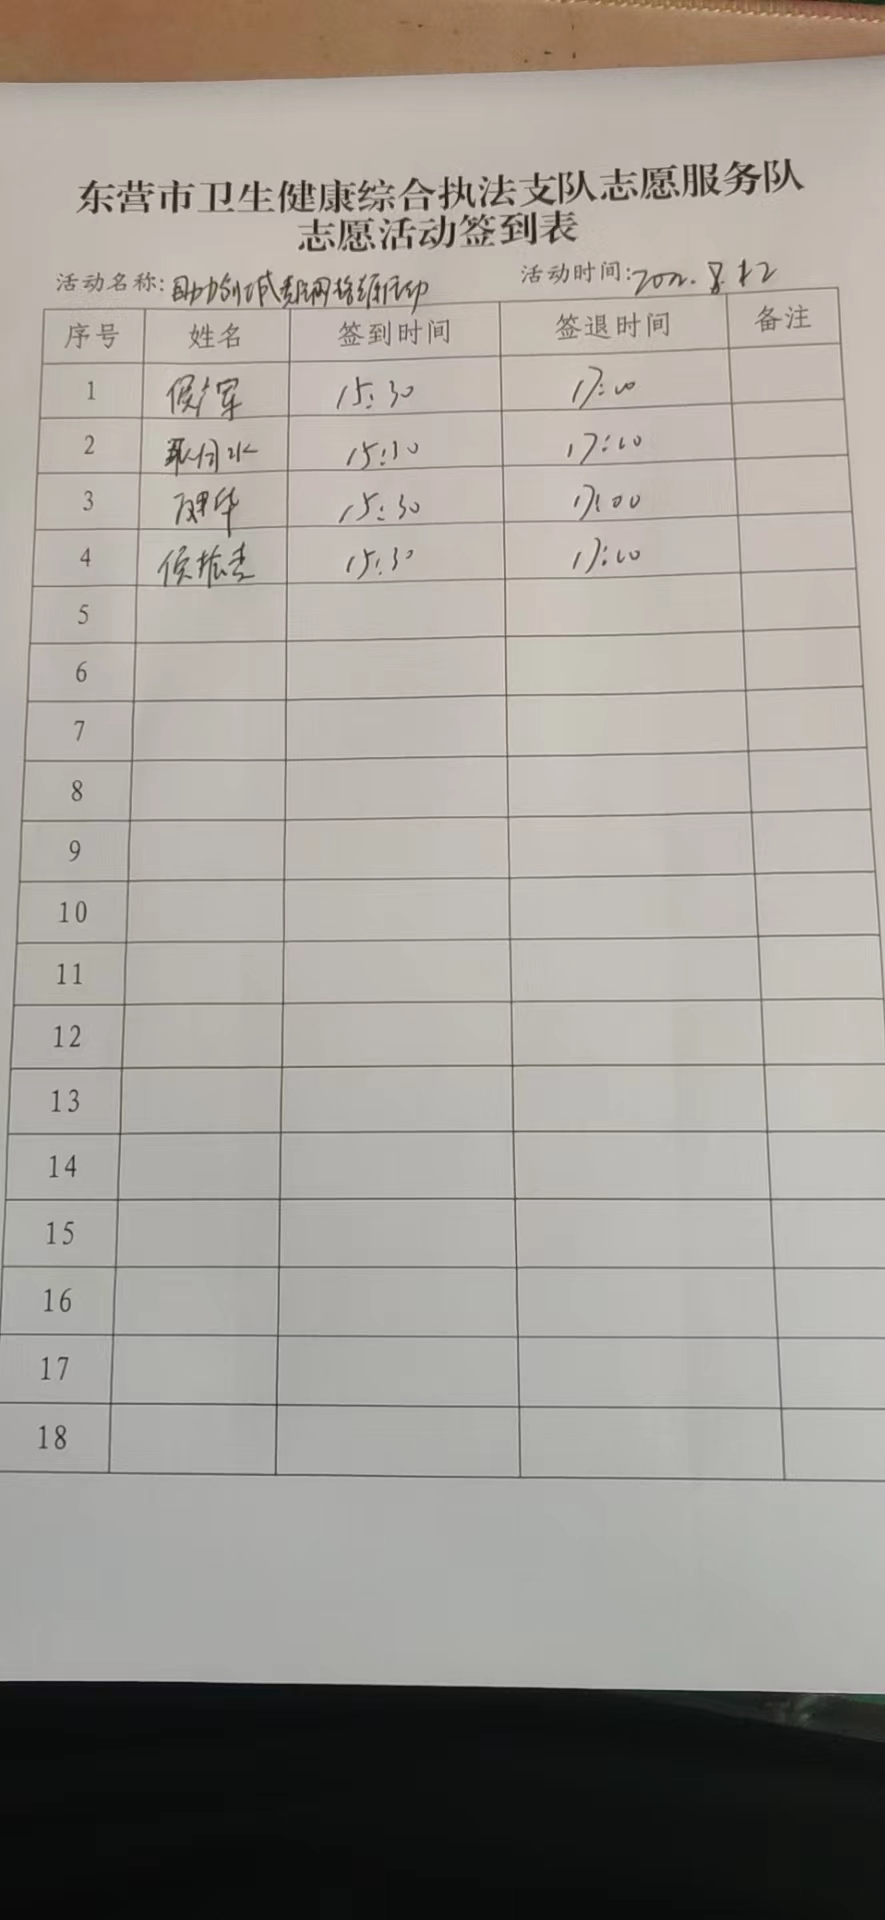 东营市卫生健康综合执法支队志愿服务队
志愿活动签到表
活动名称:助力创城责任网格 活动时间:2022.8.12
序号 姓名 签到时间 签退时间 备注
1 侯军 15:30 17:00
2 15:30 17:00
3 华 15:30 17:00
4 侯振 15:30 17:00
5
6
7
8
9
10
11
12
13
14
15
16
17
18